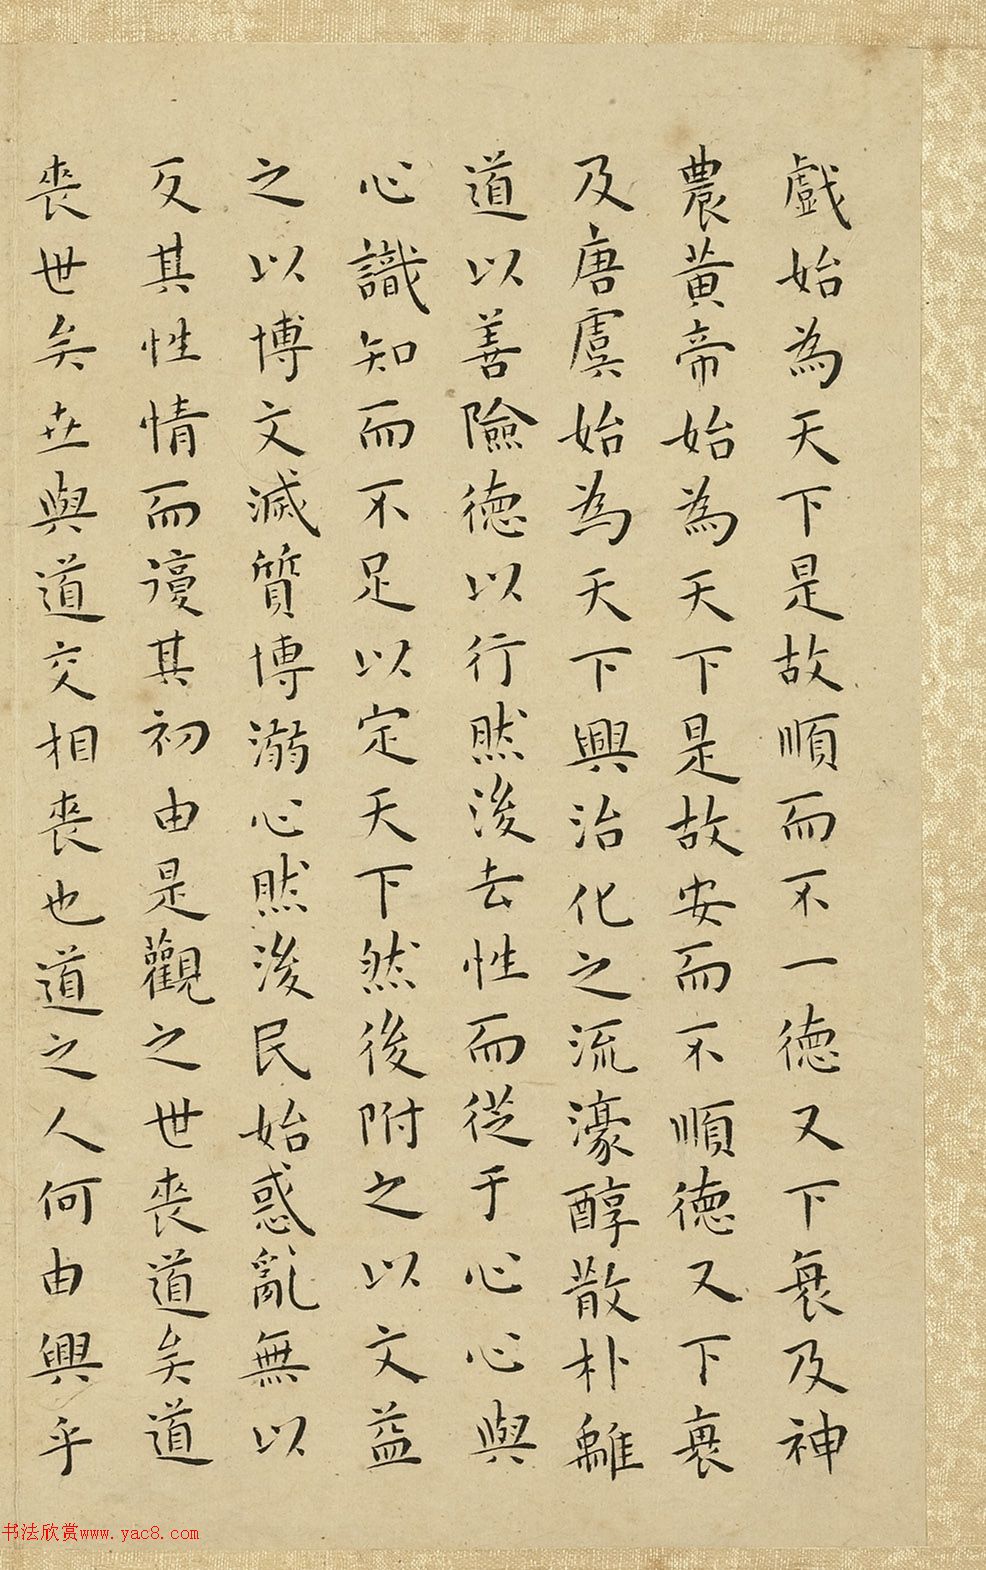 戲始為天下是故順而不一德又下衰及神
農黃帝始為天下是故安而不順德又下衰
及唐虞始為天下興治化之流濠醇散朴離
道以善險德以行然後去性而從于心心與
心識知而不足以定天下然後附之以文益
之以博文滅質博溺心然後民始惑亂無以
反其性情而復其初由是觀之世喪道矣道
喪世矣世與道交相喪也道之人何由興乎
书法欣赏www.yac8.com